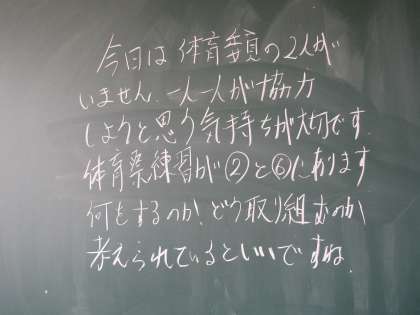 今日は体育委員の2人が
いません。一人一人が協力
しようと思う気持ちが大切です。
体育祭練習が②と⑥にあります
何をするのか!どう取り組むのか
考えられているといいですね。